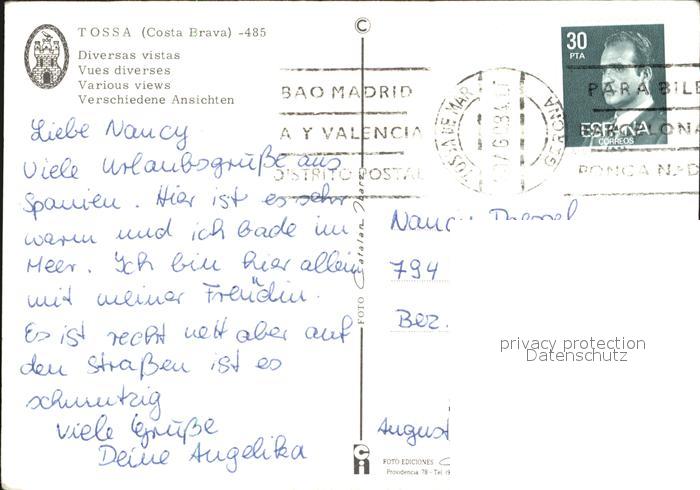 TOSSA (Costa Brava) -485
Diversas vistas
Vues diverses
Various views
Verschiedene Ansichten
©
30
PTA
ESPAÑA
CORREOS
BAO MADRID
A Y VALENCIA
DISTRITO POSTAL
TOSSA DE MAR
PARA BILB
BARCELONA
PONGA
Liebe Nancy
Viele Urlaubsgrüße aus
Spanien. Hier ist es sehr
warm und ich bade im
Meer. Ich bin hier allein
mit meiner Freundin.
Es ist recht nett aber auf
den Straßen ist es
schmutzig
Viele Grüße
Deine Angelika
FOTO
Nancy
794
Bez.
August
privacy protection
Datenschutz
FOTO EDICIONES
Providencia 78 - Tel